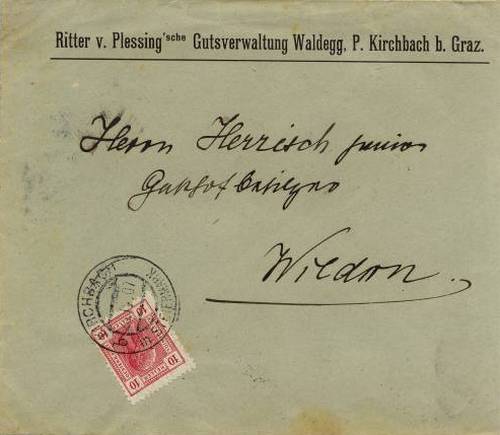 Ritter v. Plessing'sche Gutsverwaltung Waldegg, P. Kirchbach b. Graz.
Herrn Herrisch junior
Gasthofbesitzer
Wildon.
KIRCHBACH
10 10
10 10